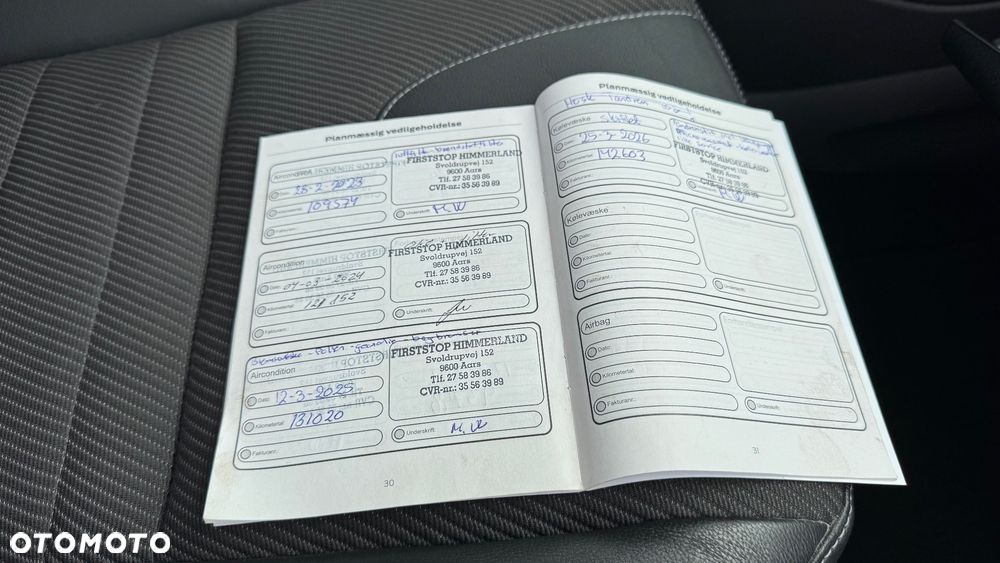 Planmæssig vedligeholdelse
Aircondition
Dato: 28-2-2023
Kilometertal: 109574
Fakturanr.:
FIRSTSTOP HIMMERLAND
Svoldrupvej 152
9600 Aars
Tlf. 27 58 39 86
CVR-nr.: 35 56 39 89
Underskrift: M.W
Aircondition
Dato: 04-03-2024
Kilometertal: 121852
Fakturanr.:
FIRSTSTOP HIMMERLAND
Svoldrupvej 152
9600 Aars
Tlf. 27 58 39 86
CVR-nr.: 35 56 39 89
Underskrift:
Aircondition
Dato: 12-3-2025
Kilometertal: 131020
Fakturanr.:
FIRSTSTOP HIMMERLAND
Svoldrupvej 152
9600 Aars
Tlf. 27 58 39 86
CVR-nr.: 35 56 39 89
Underskrift: M.W
30
Planmæssig vedligeholdelse
Husk
Kølevæske
Dato: 25-3-2026
Kilometertal: 142603
Fakturanr.:
FIRSTSTOP HIMMERLAND
Svoldrupvej 152
9600 Aars
Tlf. 27 58 39 86
CVR-nr.: 35 56 39 89
Underskrift: M.W
Kølevæske
Dato:
Kilometertal:
Fakturanr.:
Underskrift:
Airbag
Dato:
Kilometertal:
Fakturanr.:
Underskrift:
31
OTOMOTO